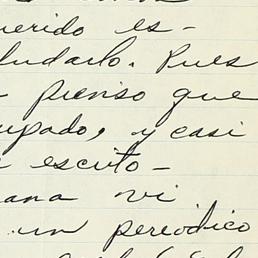 uerido es-
ludarlo. Pues
pienso que
upado, y casi
escrito-
ana vi
un periodico